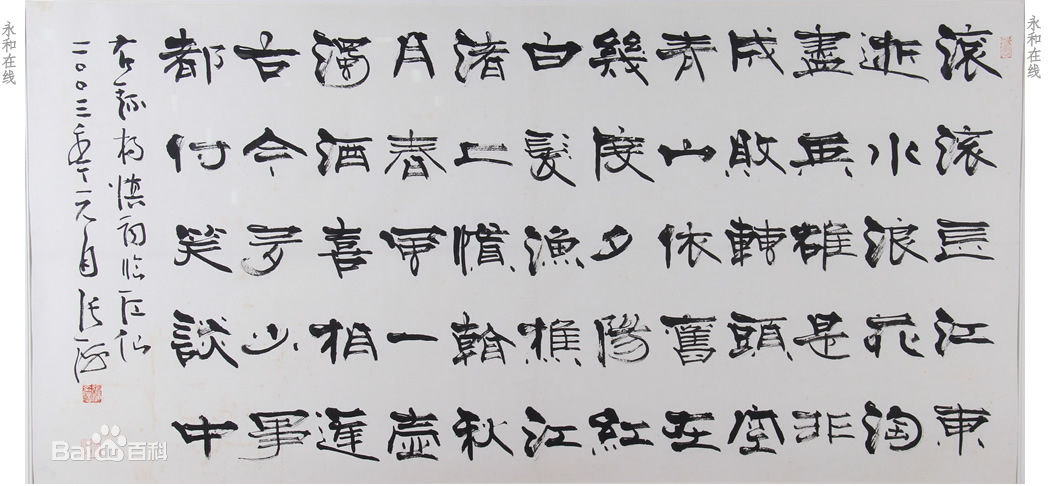 永和在线
滚滚長江東
逝水浪花淘
盡英雄是非
成敗轉頭空
青山依舊在
幾度夕陽紅
白髮漁樵江
渚上慣看秋
月春風一壺
濁酒喜相逢
古今多少事
都付笑談中
右録楊慎詞臨江仙
二〇〇三年 張海
永和在线
Bai du 百科